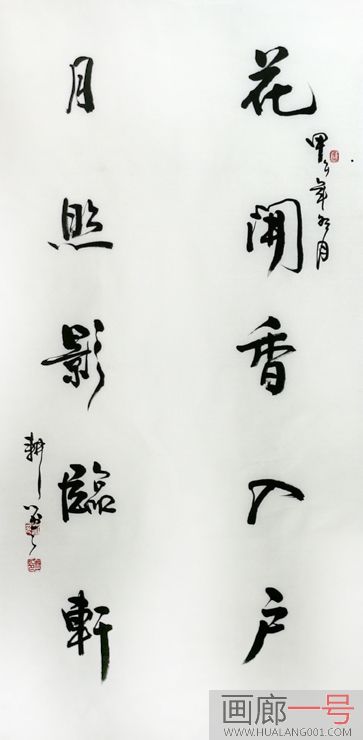 花開香入戶
月照影臨軒
年
月
耕
画廊一号
WWW.HUALANG001.COM